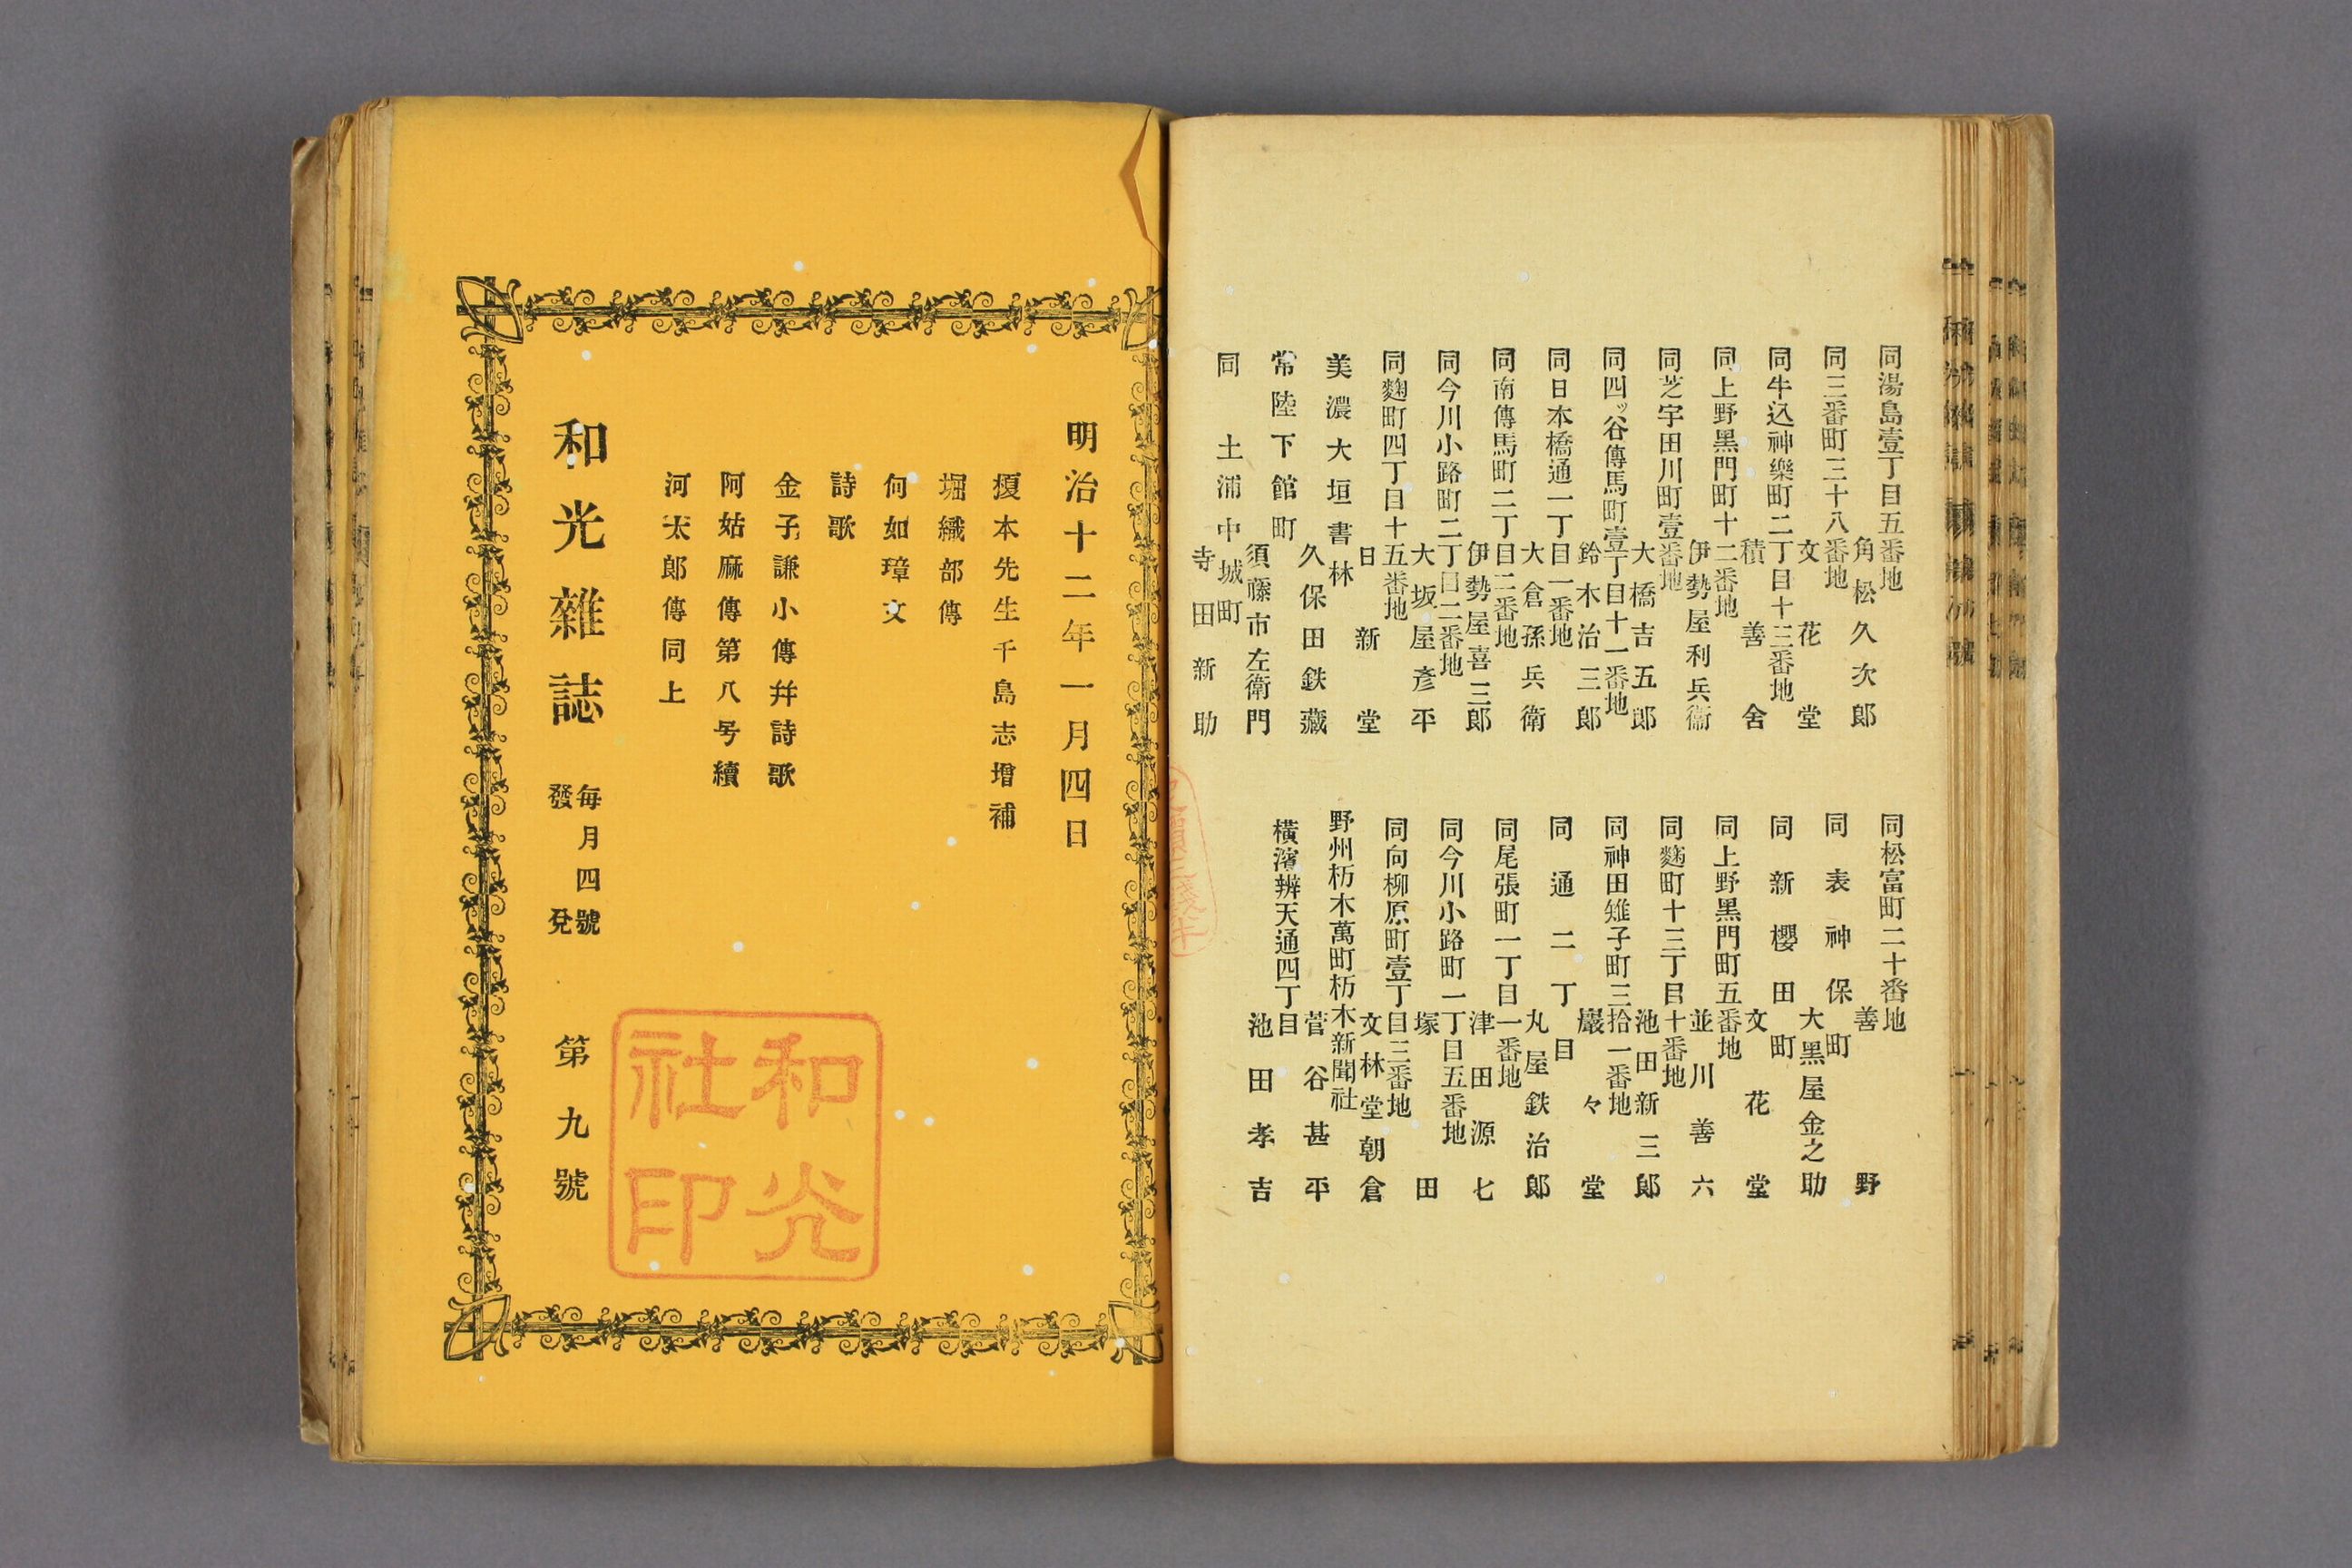 同湯島壹丁目五番地
角松久次郎
同三番町三十八番地
文花堂
同牛込神樂町二丁目十三番地
積善舍
同上野黒門町十二番地
伊勢屋利兵衞
同芝宇田川町壹番地
大橋吉五郎
同四ッ谷傳馬町壹丁目十一番地
鈴木治三郎
同日本橋通一丁目一番地
大倉孫兵衛
同南傳馬町二丁目二番地
伊勢屋喜三郎
同今川小路町二丁目二番地
大坂屋彥平
同麴町四丁目十五番地
日新堂
美濃大垣書林
久保田鉄藏
常陸下館町
須藤市左衛門
同土浦中城町
寺田新助
同松富町二十番地
善野
同表神保町
大黒屋金之助
同新櫻田町
文花堂
同上野黒門町五番地
並川善六
同麴町十三丁目十番地
池田新三郎
同神田雉子町三拾一番地
巖々堂
同通二丁目
丸屋鉄治郎
同尾張町一丁目一番地
津田源七
同今川小路町一丁目五番地
塚田
同向柳原町壹丁目三番地
文林堂朝倉
野州栃木萬町栃木新聞社
菅谷甚平
橫濱辨天通四丁目
池田孝吉
明治十二年一月四日
榎本先生千島志增補
堀織部傳
何如璋文
詩歌
金子謙小傳幷詩歌
阿姑麻傳第八号續
河太郎傳同上
和光雜誌
每月四號
發兌
第九號
和光
社印